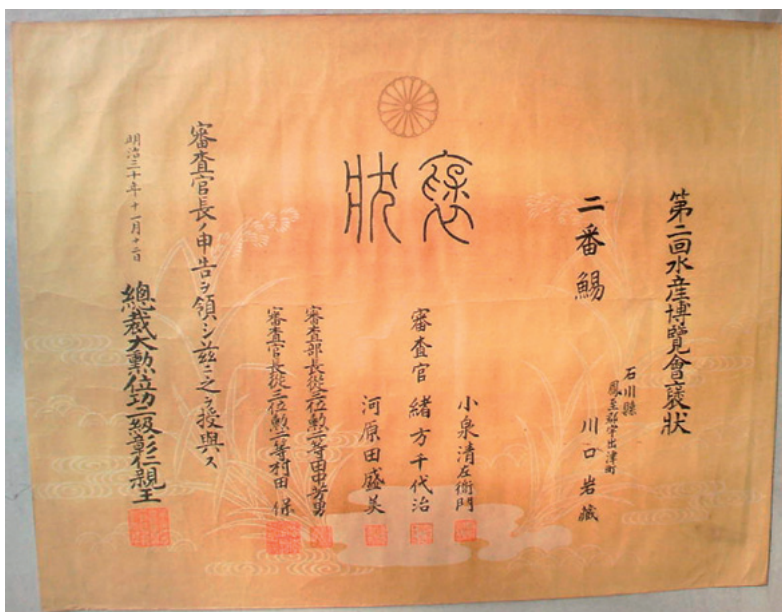 第二回水産博覽會褒狀
石川縣
鳳至郡宇出津町
川口岩藏
二番鯣
褒狀
小泉清左衞門
審査官 緒方千代治
河原田盛美
審査部長從三位勲二等田中芳男
審査官長從三位勲二等村田保
審査官長ノ申告ヲ領シ茲ニ之ヲ授與ス
明治三十年十一月十二日
總裁大勲位功二級彰仁親王